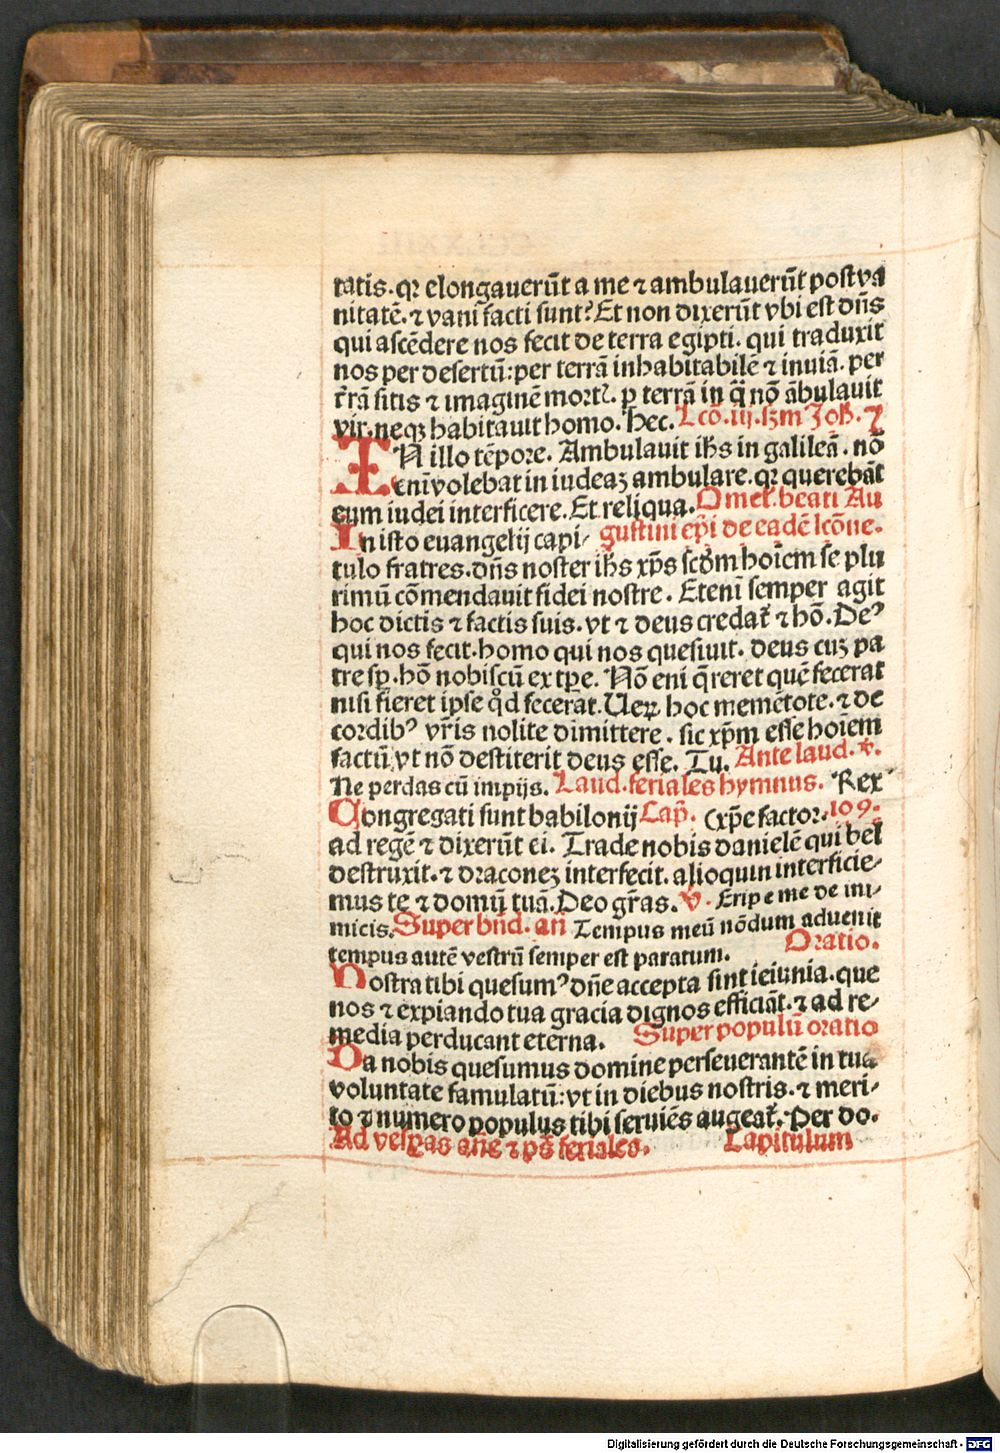 tatis. qꝛ elongauerūt a me ⁊ ambulauerūt post va
nitatē. ⁊ vani facti sunt? Et non dixerūt vbi est dn̄s
qui ascēdere nos fecit de terra egipti. qui traduxit
nos per desertū: per terrā inhabitabilē ⁊ inuiā. per
t̄rā sitis ⁊ imaginē mortꝭ. ꝑ terrā in q̄ nō ābulauit
vir. neqꝫ habitauit homo. Hec. Lcō. iij. scḋm Joh̄. ⁊
IN illo tēpore. Ambulauit ih̄s in galileā. nō
eni volebat in iudeaꝫ ambulare. qꝛ querebāt
eum iudei interficere. Et reliqua. Omel̄. beati Au
In isto euangelij capi⸗ gustini ep̄i de eadē lcōne.
tulo fratres. dn̄s noster ih̄s xp̄s scḋm hoīem se plu
rimū cōmendauit fidei nostre. Etenī semper agit
hoc dictis ⁊ factis suis. vt ⁊ deus credat̄ ⁊ hō. Deꝰ
qui nos fecit. homo qui nos quesiuit. deus cuꝫ pa
tre sꝑ. hō nobiscū ex tꝑe. Nō eni q̄reret quē fecerat
nisi fieret ipse qd̄ fecerat. Ueꝝ hoc memētote. ⁊ de
cordibꝰ vr̄is nolite dimittere. sic xp̄m esse hoīem
factū vt nō destiterit deus esse. Tu. Ante laud. v̄.
Ne perdas cū impijs. Laud. feriales hymnus. Rex
Congregati sunt babilonij Cap̄. (xp̄e factor. 109.
ad regē ⁊ dixerūt ei. Trade nobis danielē qui bel
destruxit. ⁊ draconeꝫ interfecit. alioquin interficie⸗
mus te ⁊ domū tuā. Deo gr̄as. v̄. Eripe me de ini⸗
micis. Super bn̄d. an̄ Tempus meū nōdum aduenit
tempus autē vestrū semper est paratum. Oratio.
Nostra tibi quesumꝰ dn̄e accepta sint ieiunia. que
nos ⁊ expiando tua gracia dignos efficiāt. ⁊ ad re⸗
media perducant eterna. Super populū oratio
Da nobis quesumus domine perseuerantē in tua
voluntate famulatū: vt in diebus nostris. ⁊ meri⸗
to ⁊ numero populus tibi seruiēs augeat̄. Per do.
Ad vesꝑas an̄e ⁊ ps̄ feriales. Capitulum
Digitalisierung gefördert durch die Deutsche Forschungsgemeinschaft - DFG